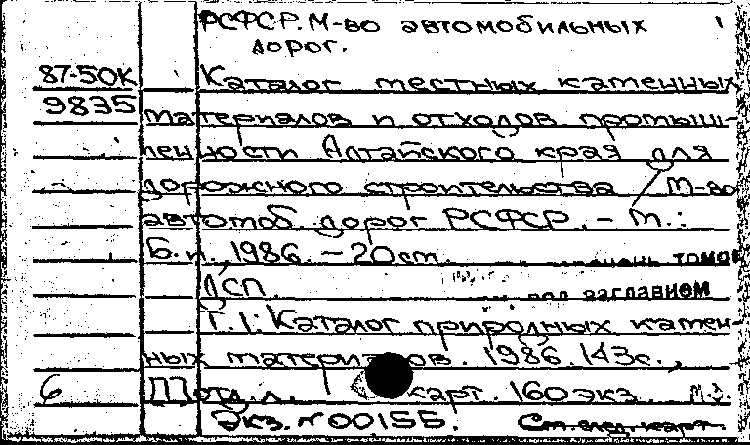 РСФСР. М-во автомобильных
дорог.
87-50К Каталог местных каменных
9835 материалов и отходов промыш-
ленности Алтайского края для
дорожного строительства / М-во
автомоб. дорог РСФСР. – М.:
Б.и., 1986. – 20 см.
томов
ДСП. под заглавием
Т. 1: Каталог природных камен-
ных материалов. 1986. 143 с.,
6 карт. 160 экз.
Экз. №00155. См. след. карт.